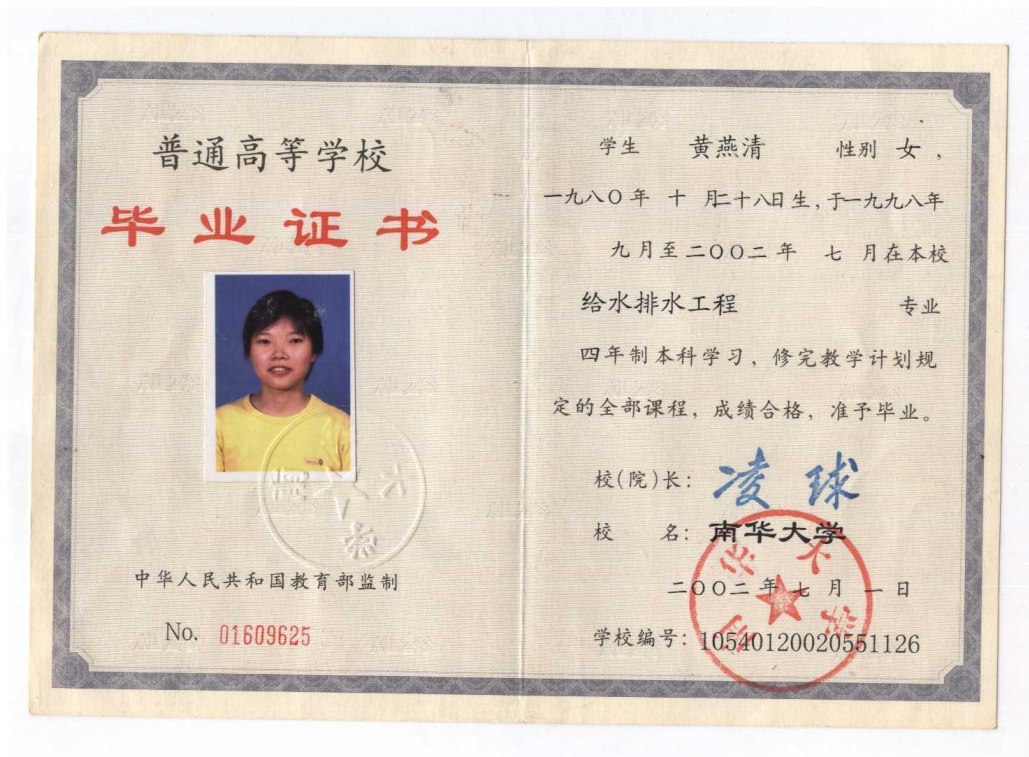 普通高等学校
毕业证书
中华人民共和国教育部监制
No. 01609625
学生 黄燕清 性别 女，
一九八〇年 十 月二十八日生，于一九九八年
九月至二〇〇二年 七 月在本校
给水排水工程 专业
四年制本科学习，修完教学计划规
定的全部课程，成绩合格，准予毕业。
校（院）长：凌球
校 名：南华大学
二〇〇二年七月一日
学校编号：105401200205​51126
南华大学